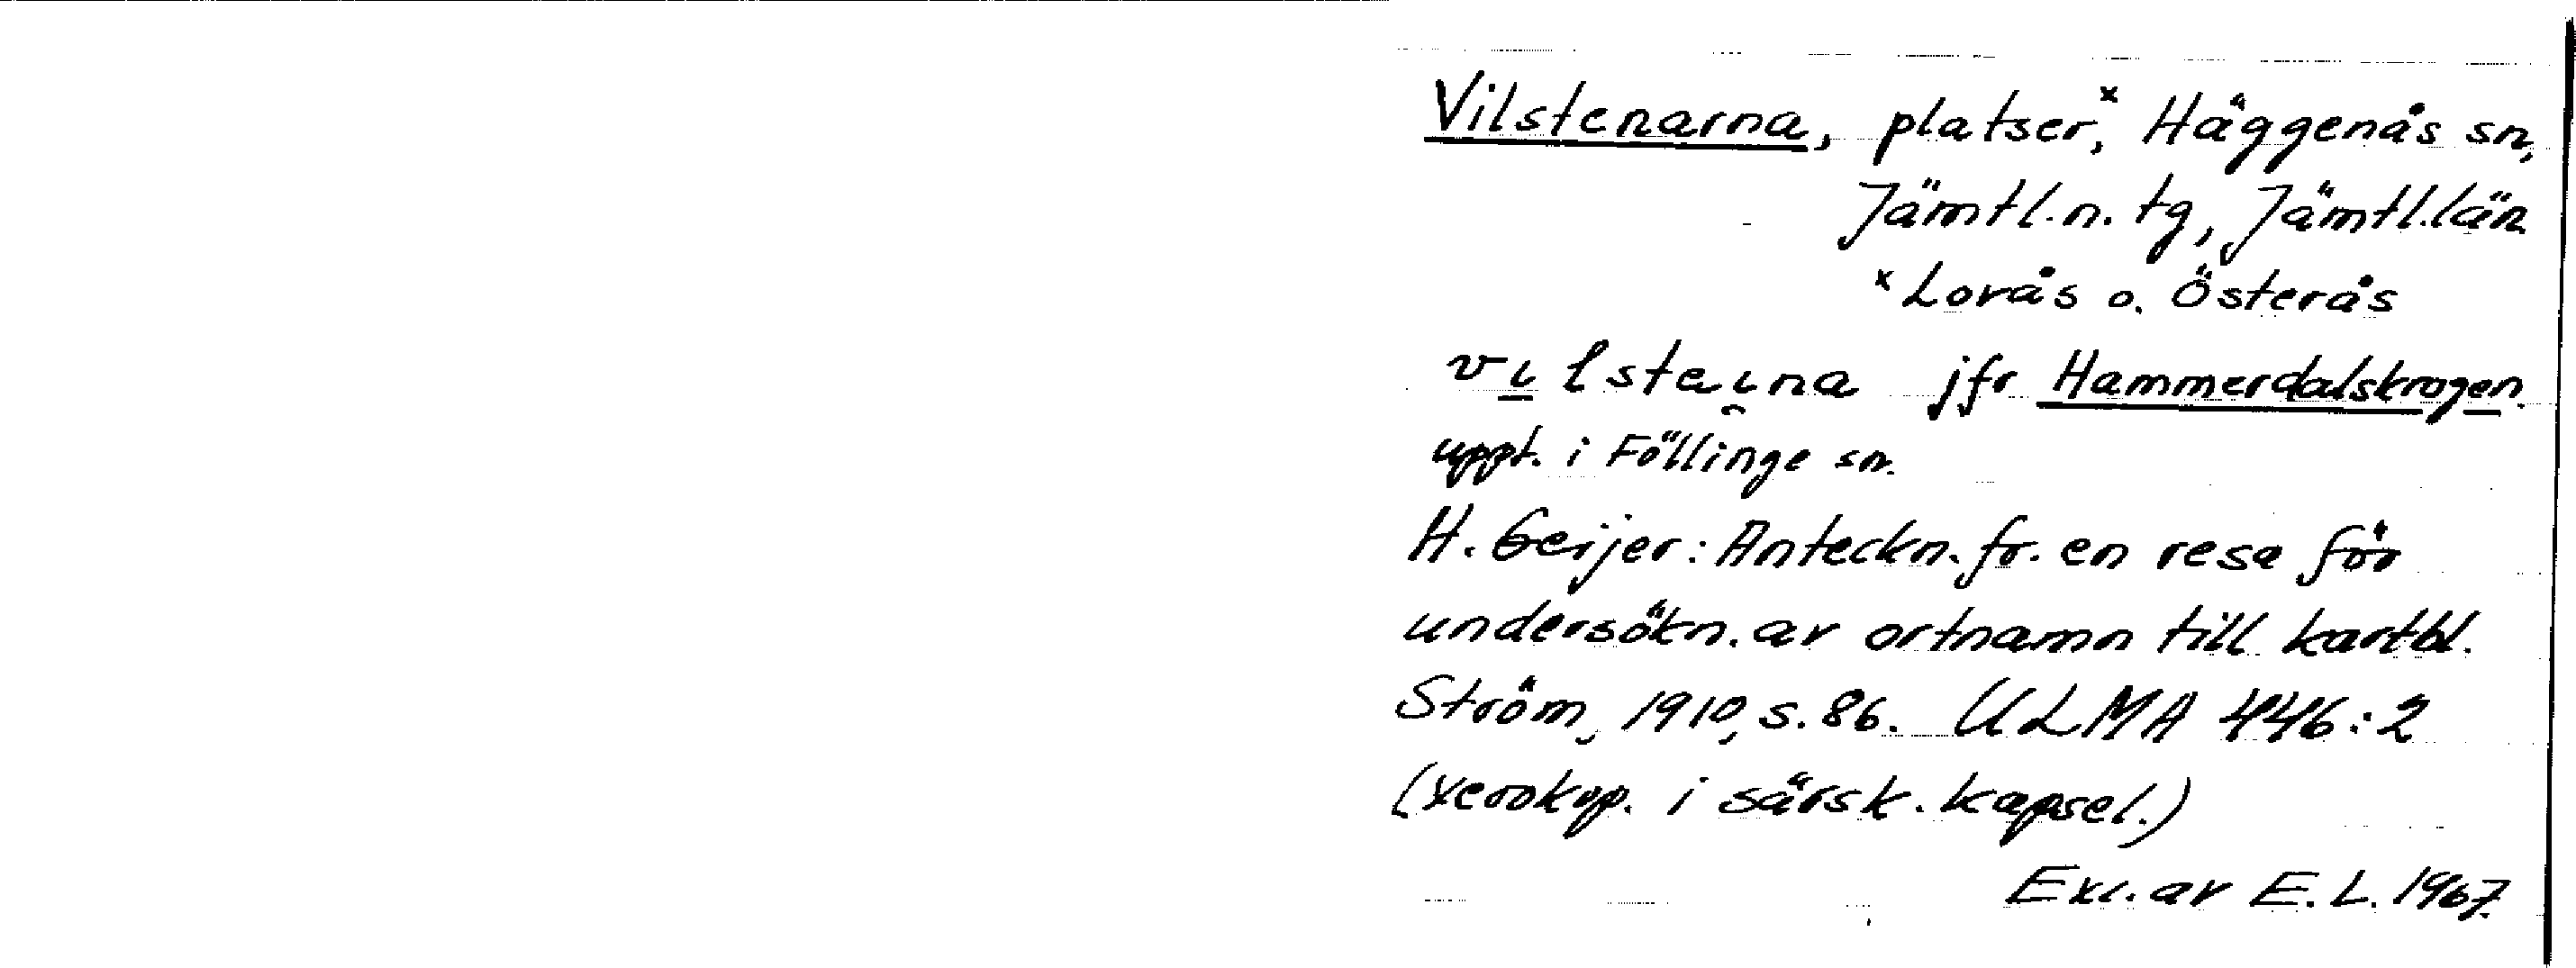 Vilstenarna, platser,ˣ Häggenås sn,
Jämtl. n. tg, Jämtl. län
ˣ Lorås o. Österås
vılstaı̯na jfr Hammerdalskrogen
uppt. i Föllinge sn.
H. Geijer: Anteckn. fr. en resa för
undersökn. av ortnamn till kartbl.
Ström, 1910, s. 86. ULMA 446:2
(xerokop. i särsk. kapsel.)
Exc. av E. L. 1967